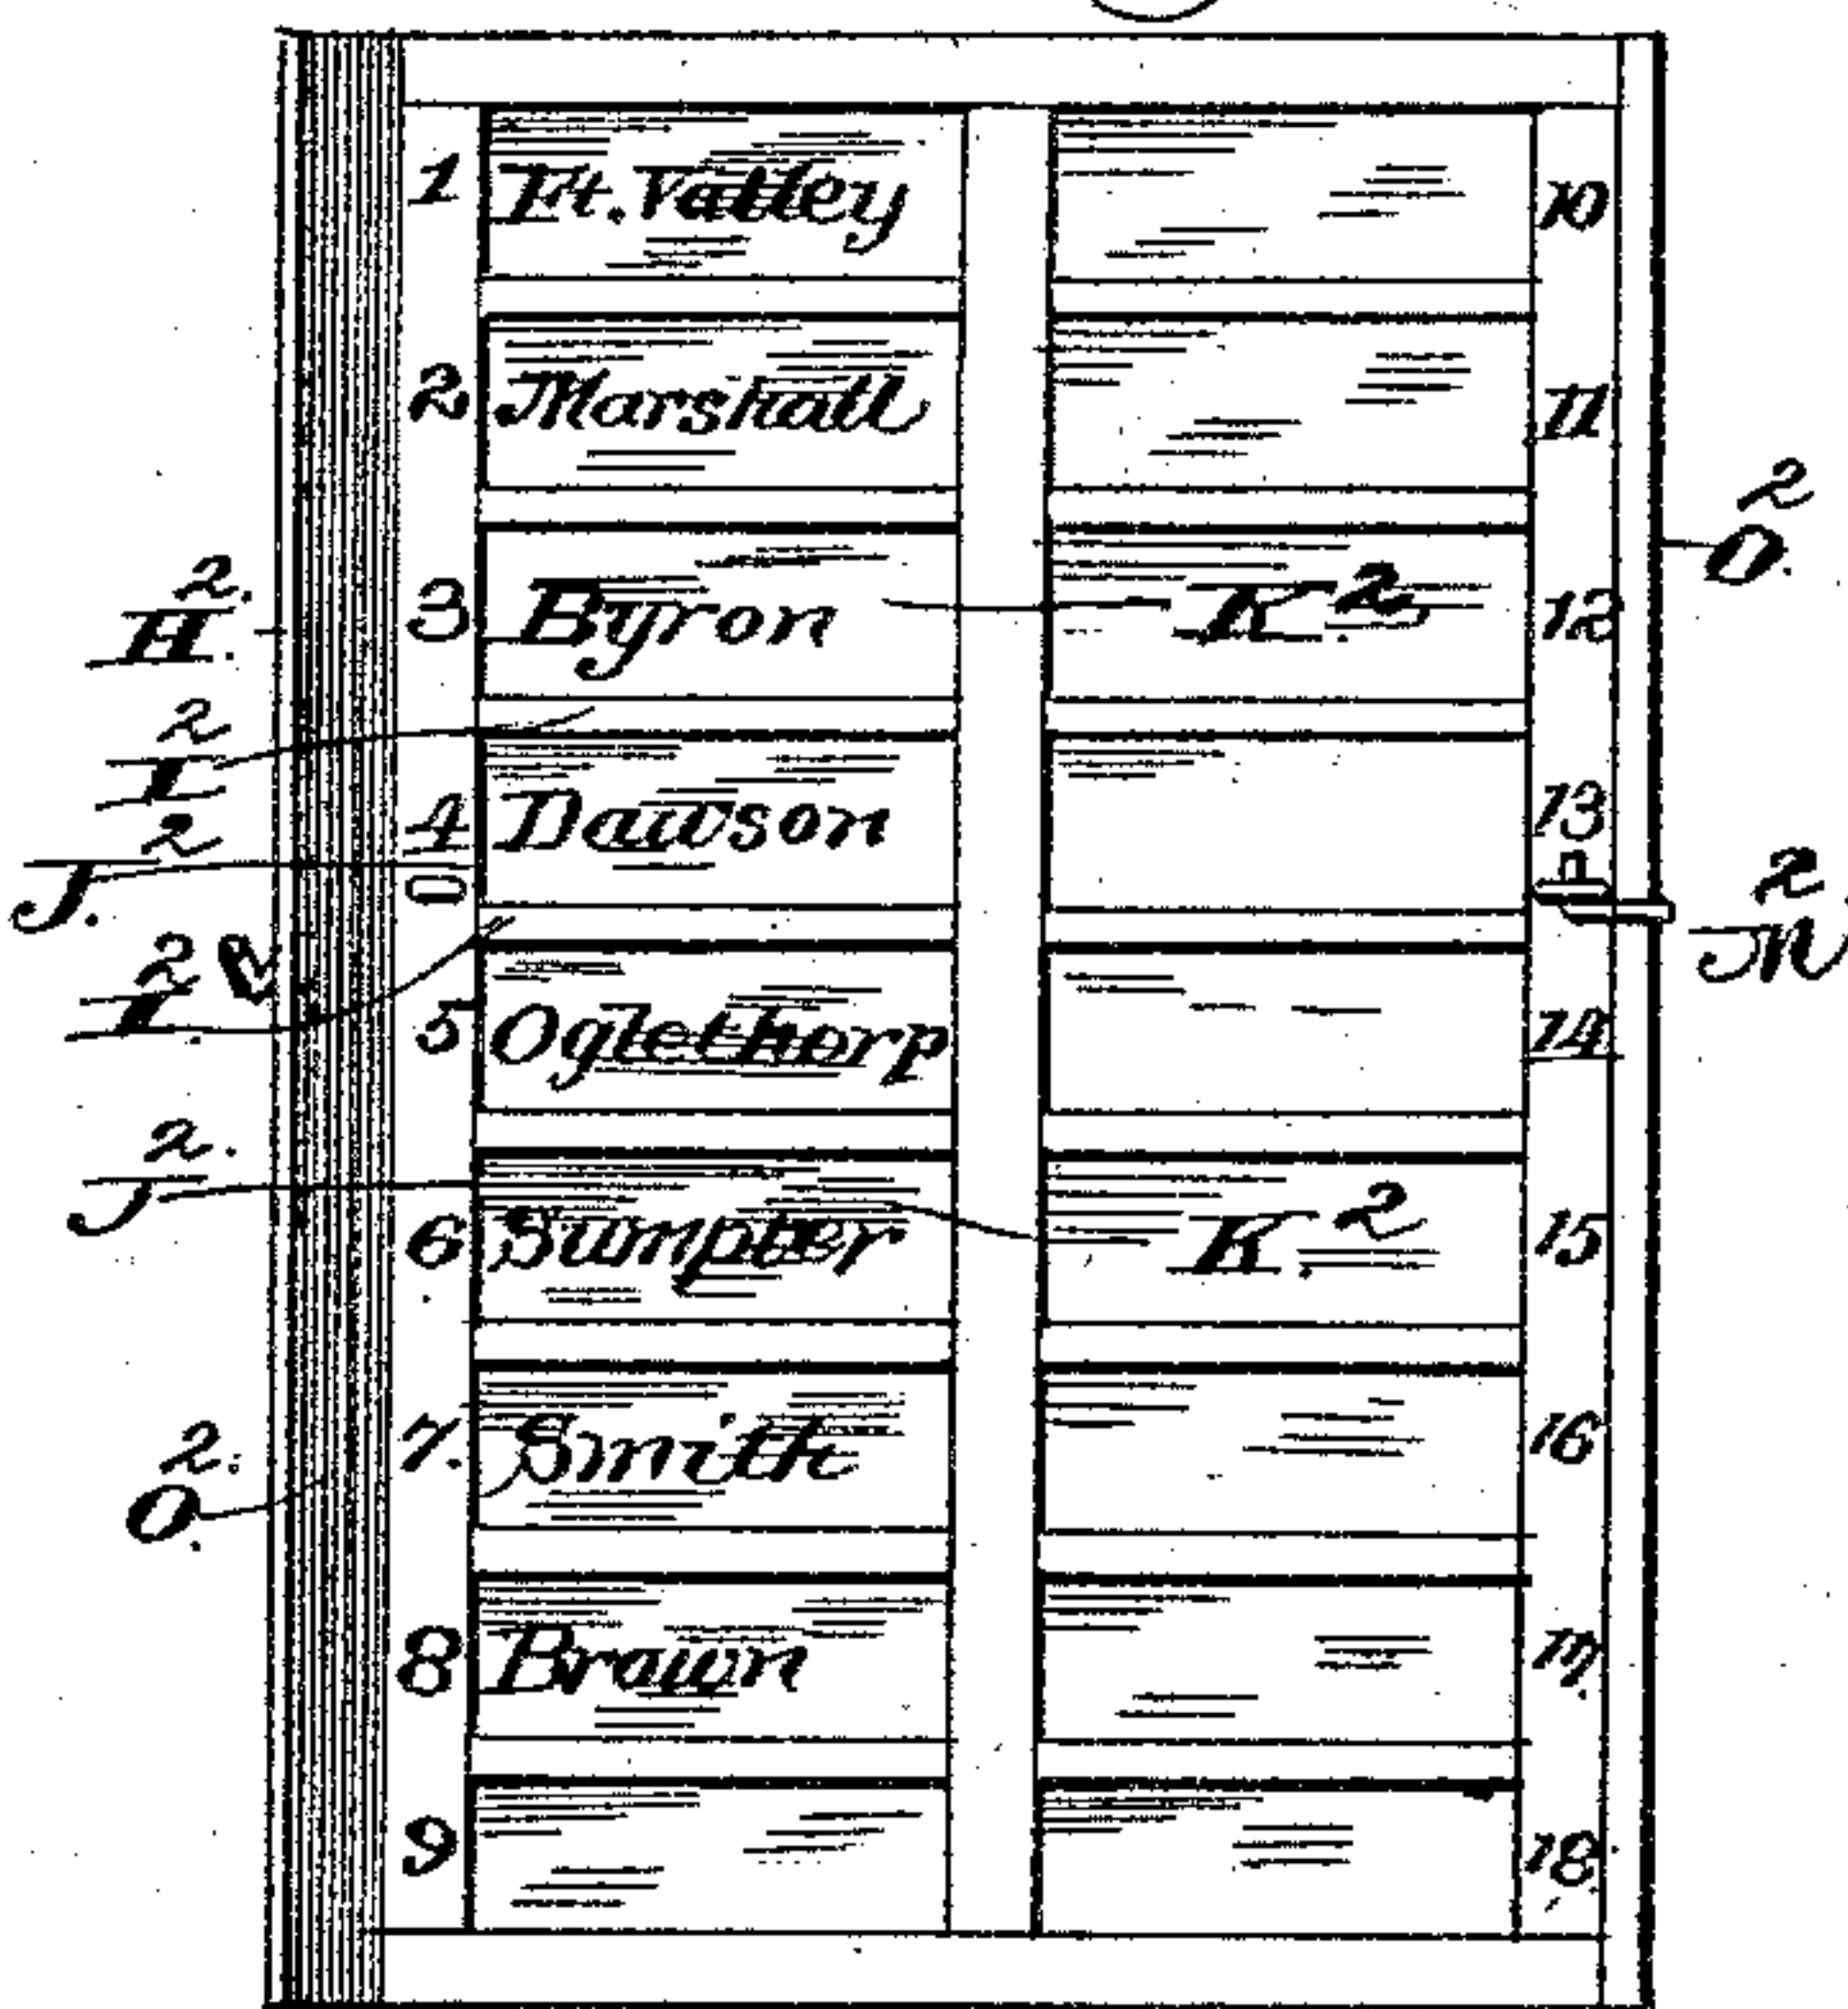 1 Ft. Valley 10
2 Marshall 11
O.²
H.² 3 Byron K.² 12
I²
4 Dawson 13
J.²
M²
I.² 5 Oglethorp 14
J² 6 Sumpter K.² 15
O.² 7. Smith 16
8 Brawn 17.
9 18